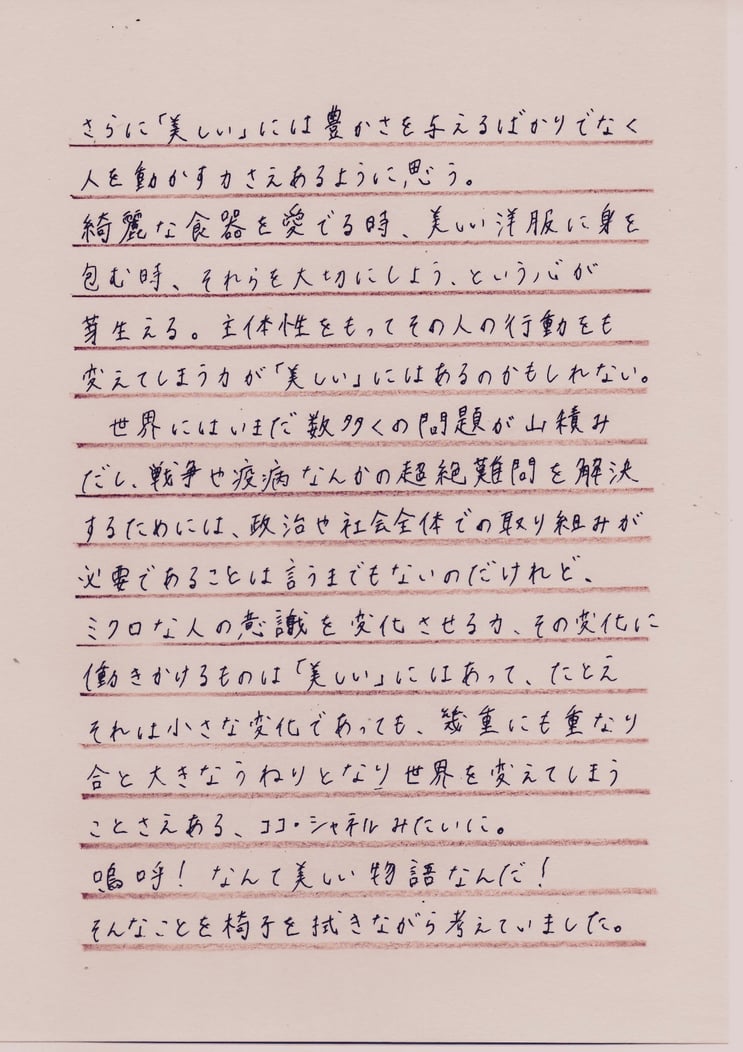 さらに「美しい」には豊かさを与えるばかりでなく
人を動かす力さえあるように思う。
綺麗な食器を愛でる時、美しい洋服に身を
包む時、それらを大切にしよう、という心が
芽生える。主体性をもってその人の行動をも
変えてしまう力が「美しい」にはあるのかもしれない。
世界にはいまだ数多くの問題が山積み
だし、戦争や疫病なんかの超絶難問を解決
するためには、政治や社会全体での取り組みが
必要であることは言うまでもないのだけれど、
ミクロな人の意識を変化させる力、その変化に
働きかけるものは「美しい」にはあって、たとえ
それは小さな変化であっても、幾重にも重なり
合と大きなうねりとなり世界を変えてしまう
ことさえある、ココ・シャネルみたいに。
嗚呼！なんて美しい物語なんだ！
そんなことを椅子を拭きながら考えていました。